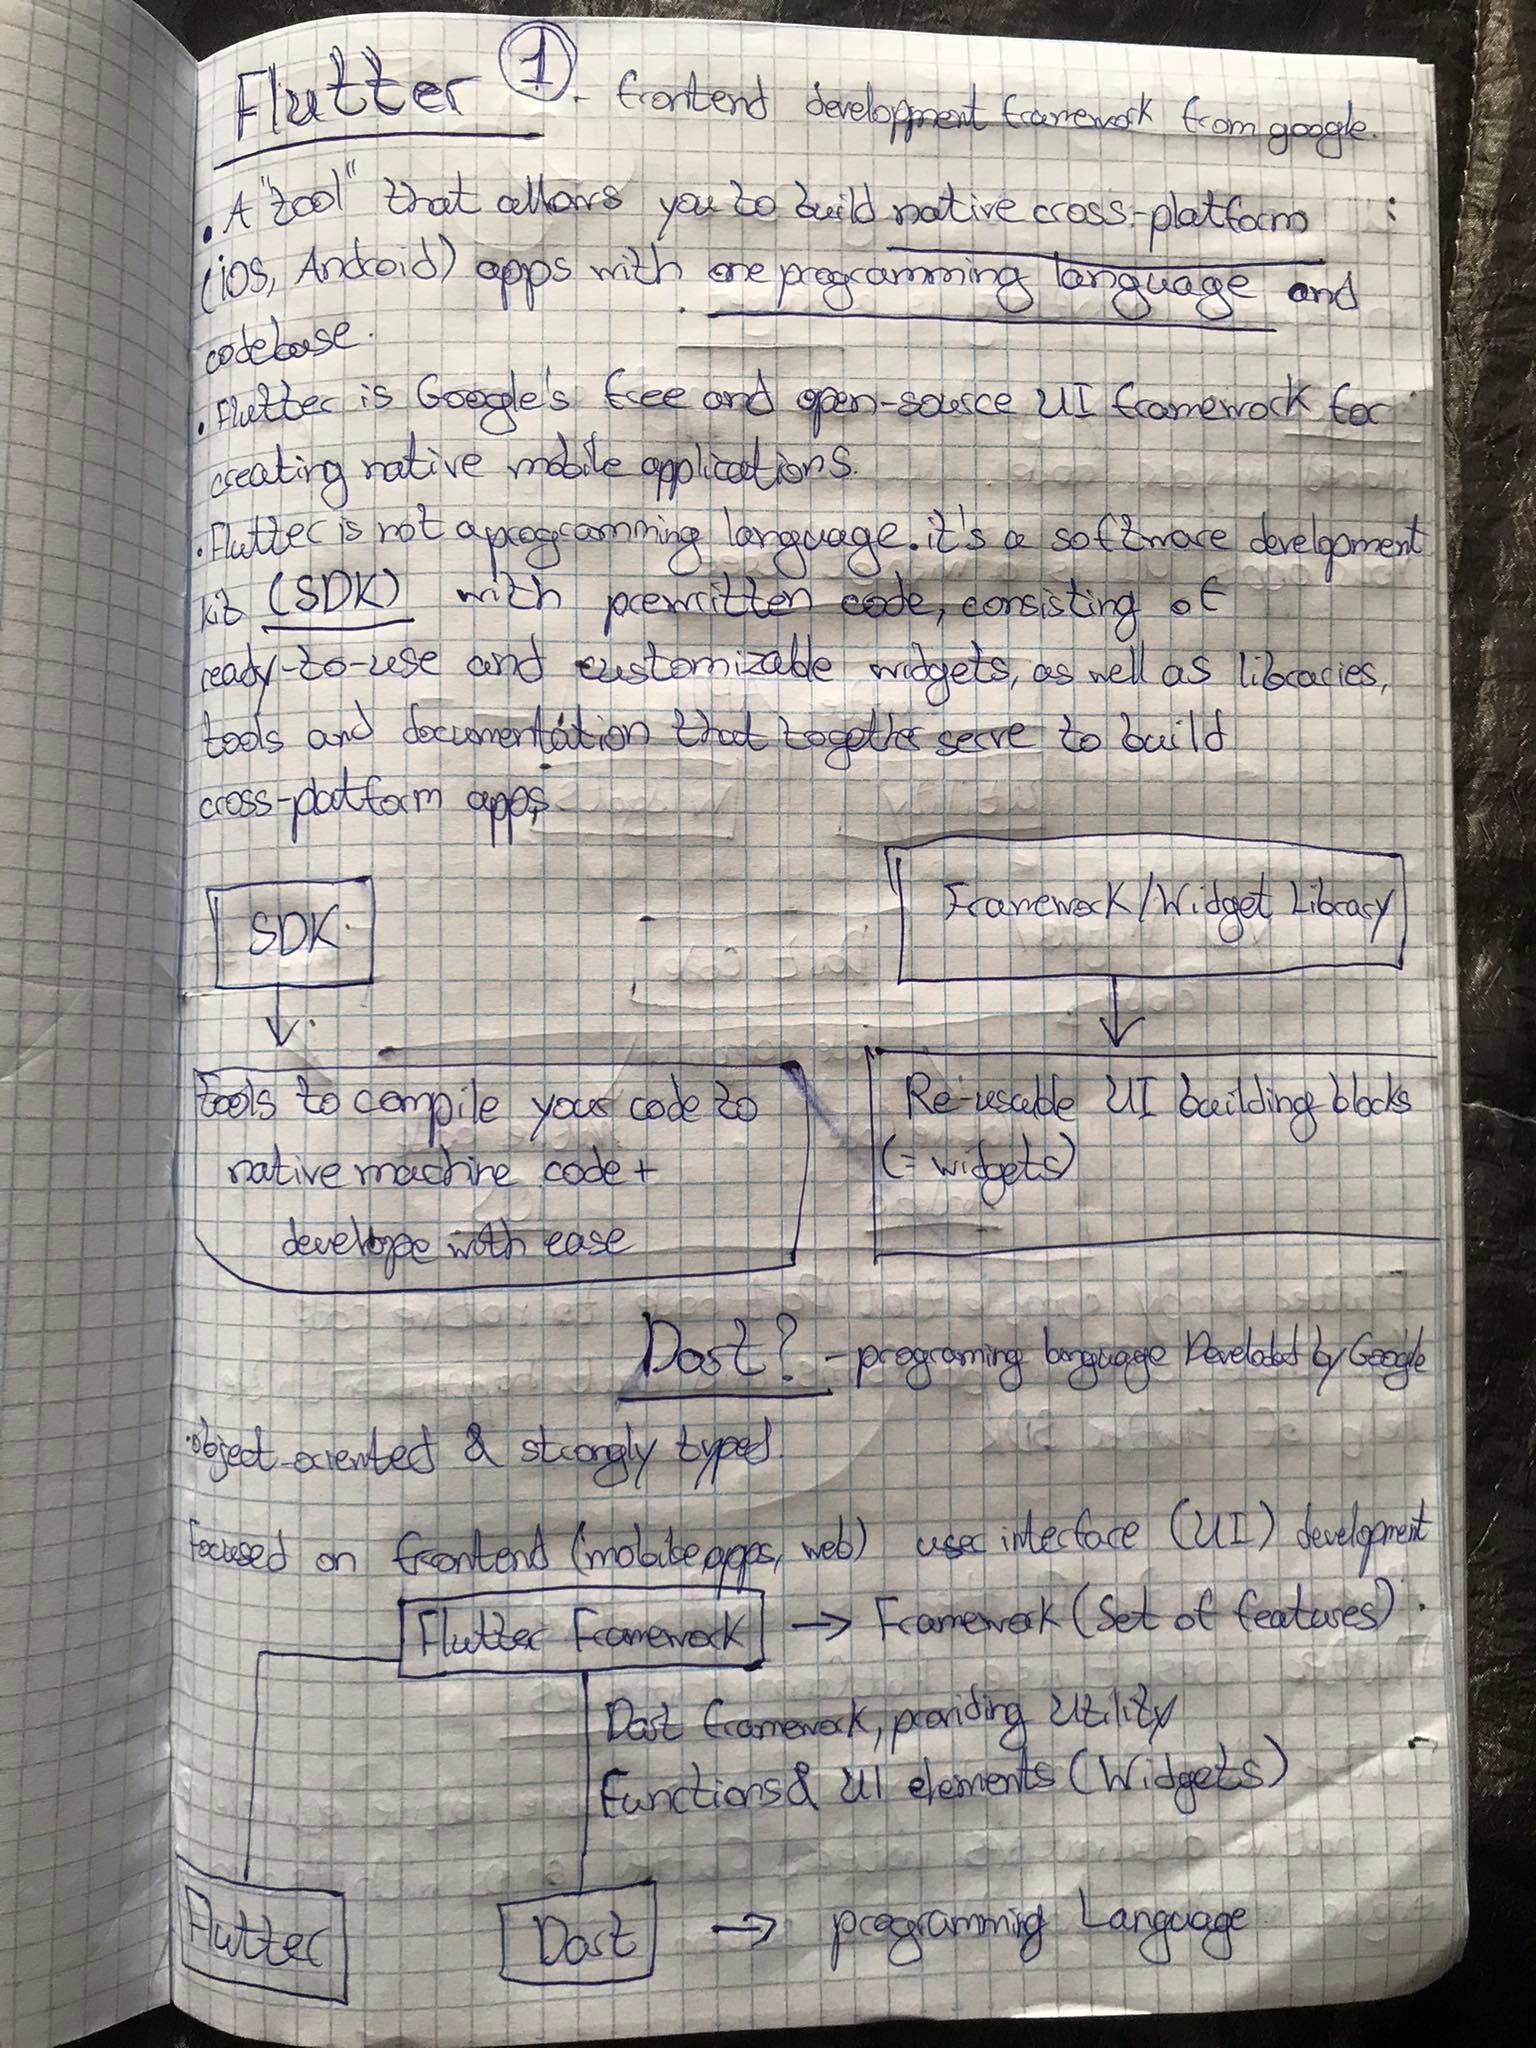 Flutter 1 - frontend development framework from google.
• A "tool" that allows you to build native cross-platform
(iOS, Android) apps with one programming language and
codebase.
• Flutter is Google's free and open-source UI framework for
creating native mobile applications.
• Flutter is not a programming language. it's a software development
kit (SDK) with prewritten code, consisting of
ready-to-use and customizable widgets, as well as libraries,
tools and documentation that together serve to build
cross-platform apps
SDK
Framework/Widget Library
tools to compile your code to
native machine code +
develope with ease
Re-usable UI building blocks
(= widgets)
Dart? - programing language Developed by Google
• object-oriented & strongly typed.
Focused on frontend (mobile apps, web) user interface (UI) development
Flutter Framework → Framework (Set of features).
Dart framework, providing Utility
Functions & UI elements (Widgets)
Flutter
Dart → programming Language